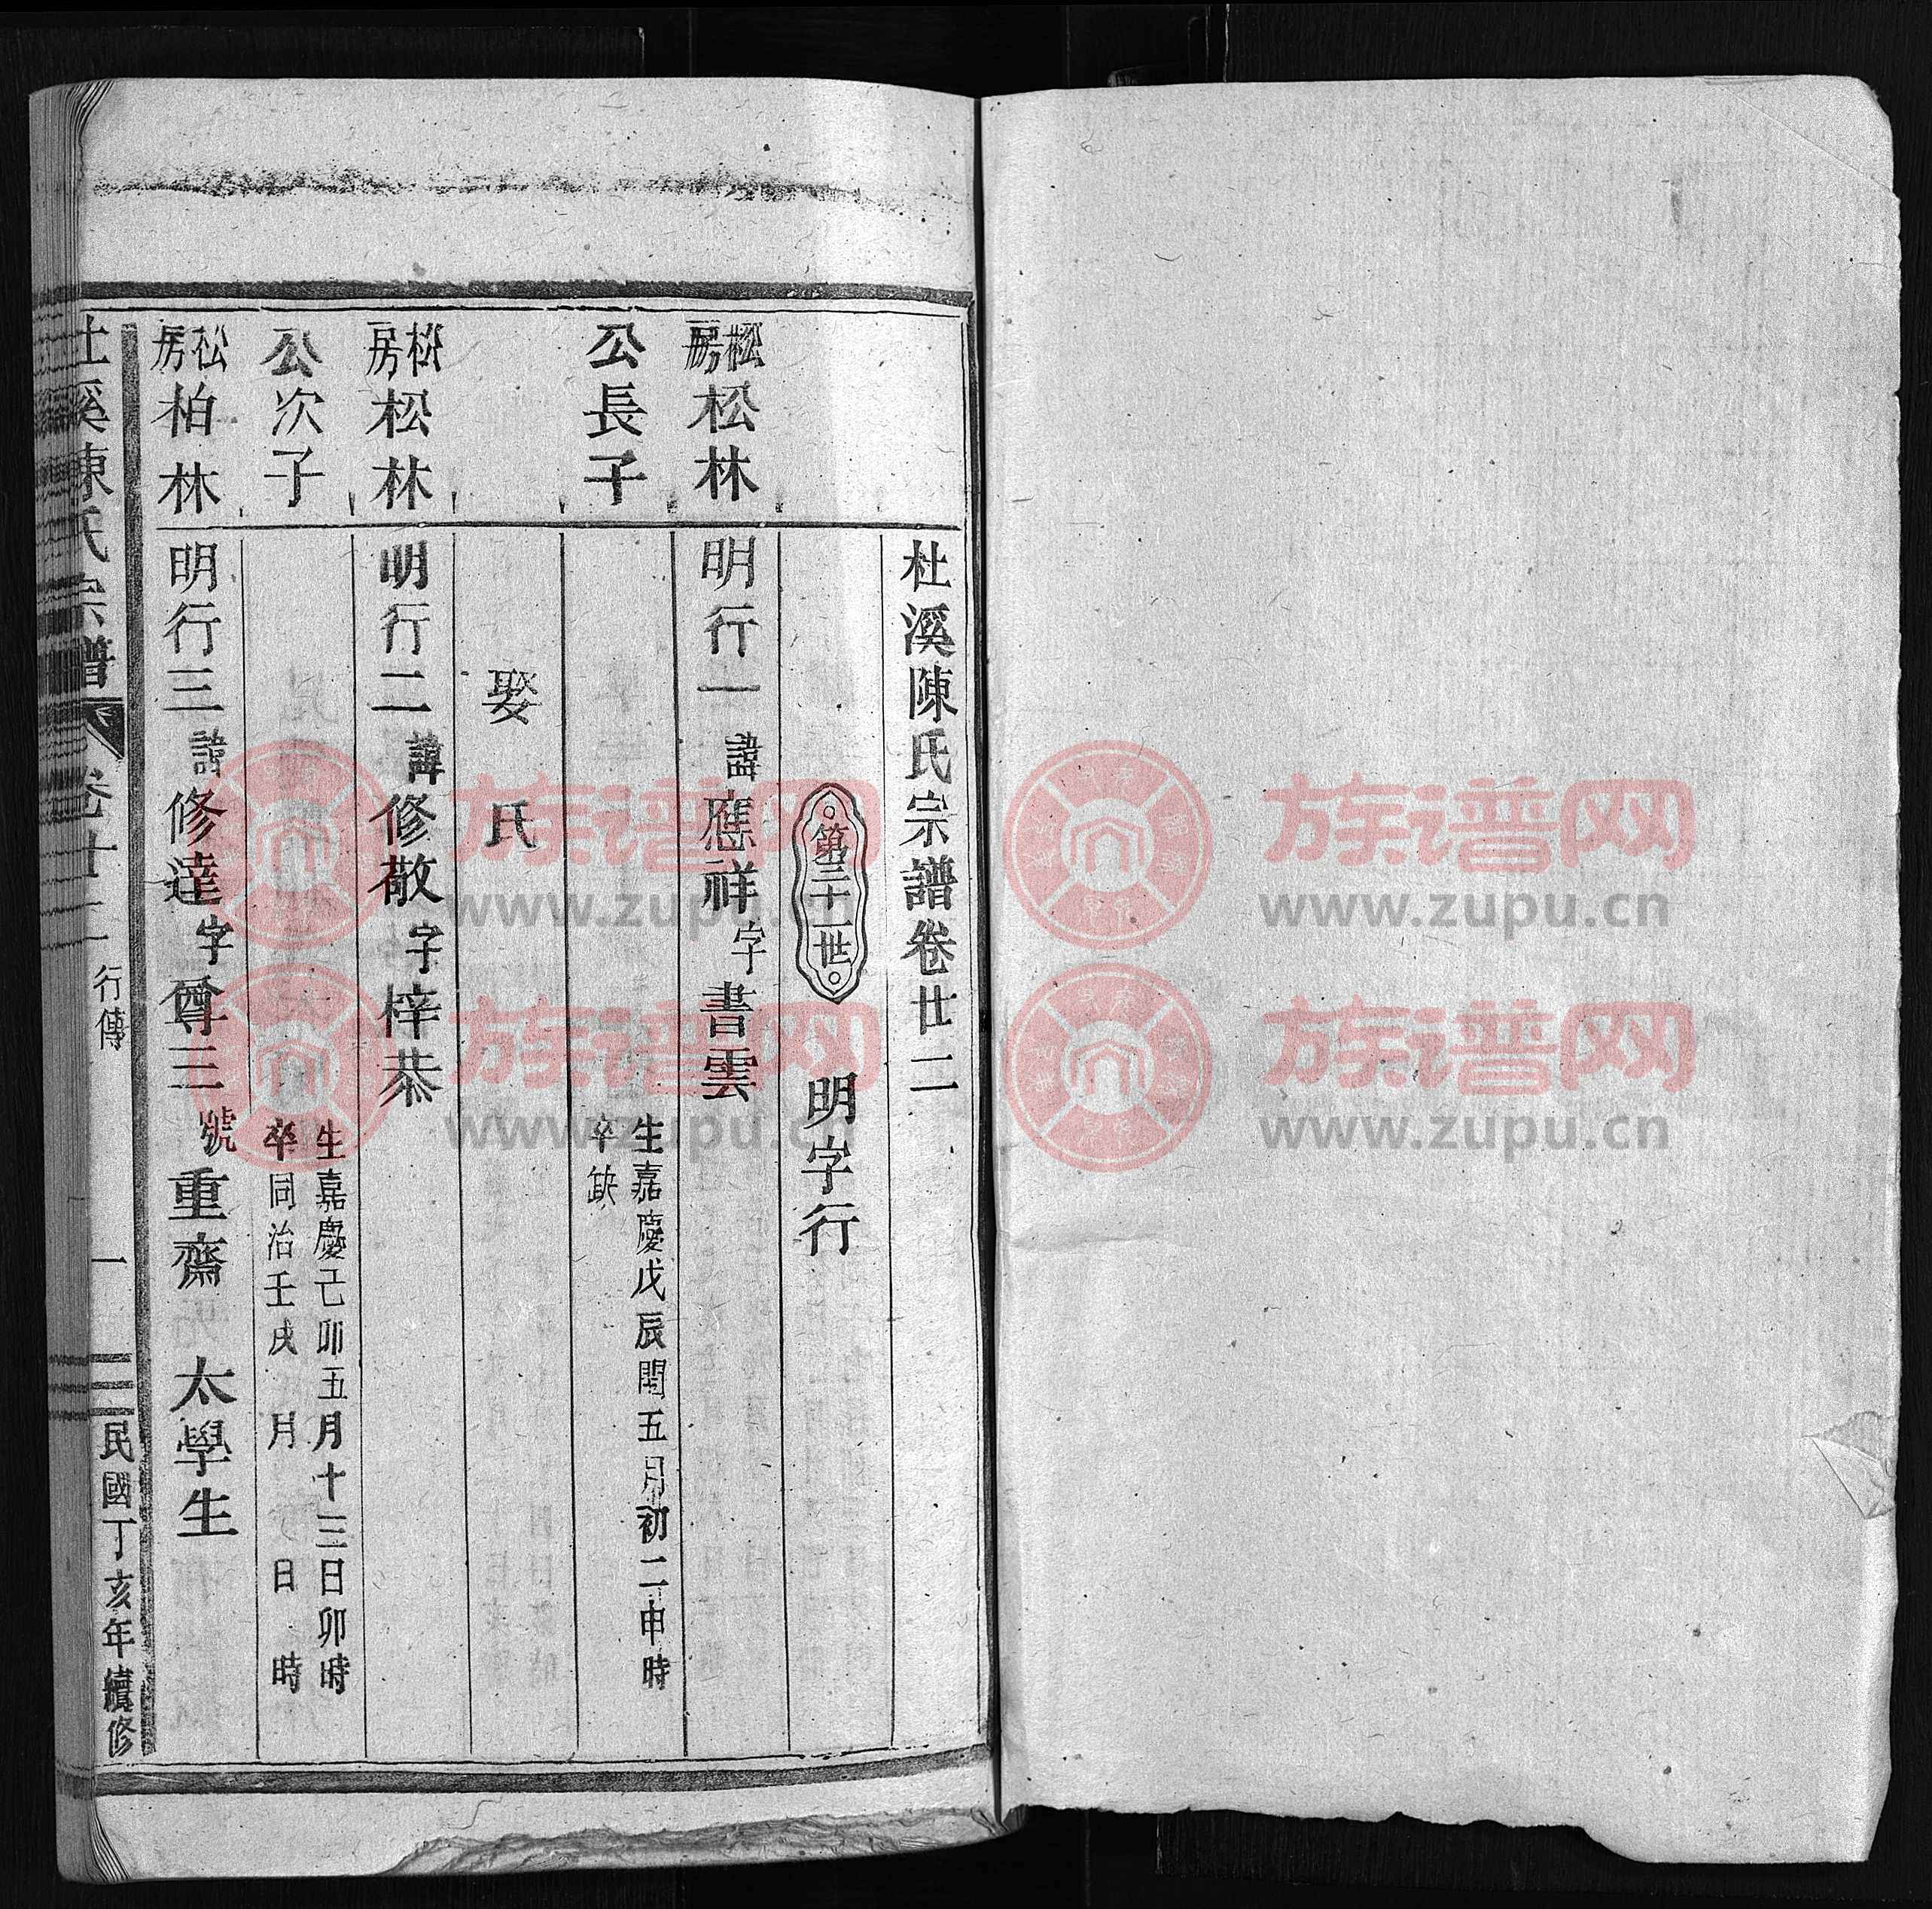 杜溪陳氏宗譜卷廿二
第三十一世
明字行
松房松林
明行一諱應祥字書雲
公長子
生嘉慶戊辰閏五月初二申時
卒缺
娶 氏
松房松林
明行二諱修敬字梓恭
公次子
生嘉慶己卯五月十三日卯時
卒同治壬戌 月 日 時
松房柏林
明行三諱修達字尊三號重齋 太學生
杜溪陳氏宗譜 卷廿二 行傳 一 民國丁亥年續修
族谱网
www.zupu.cn
族谱网
www.zupu.cn
族谱网
www.zupu.cn
族谱网
www.zupu.cn